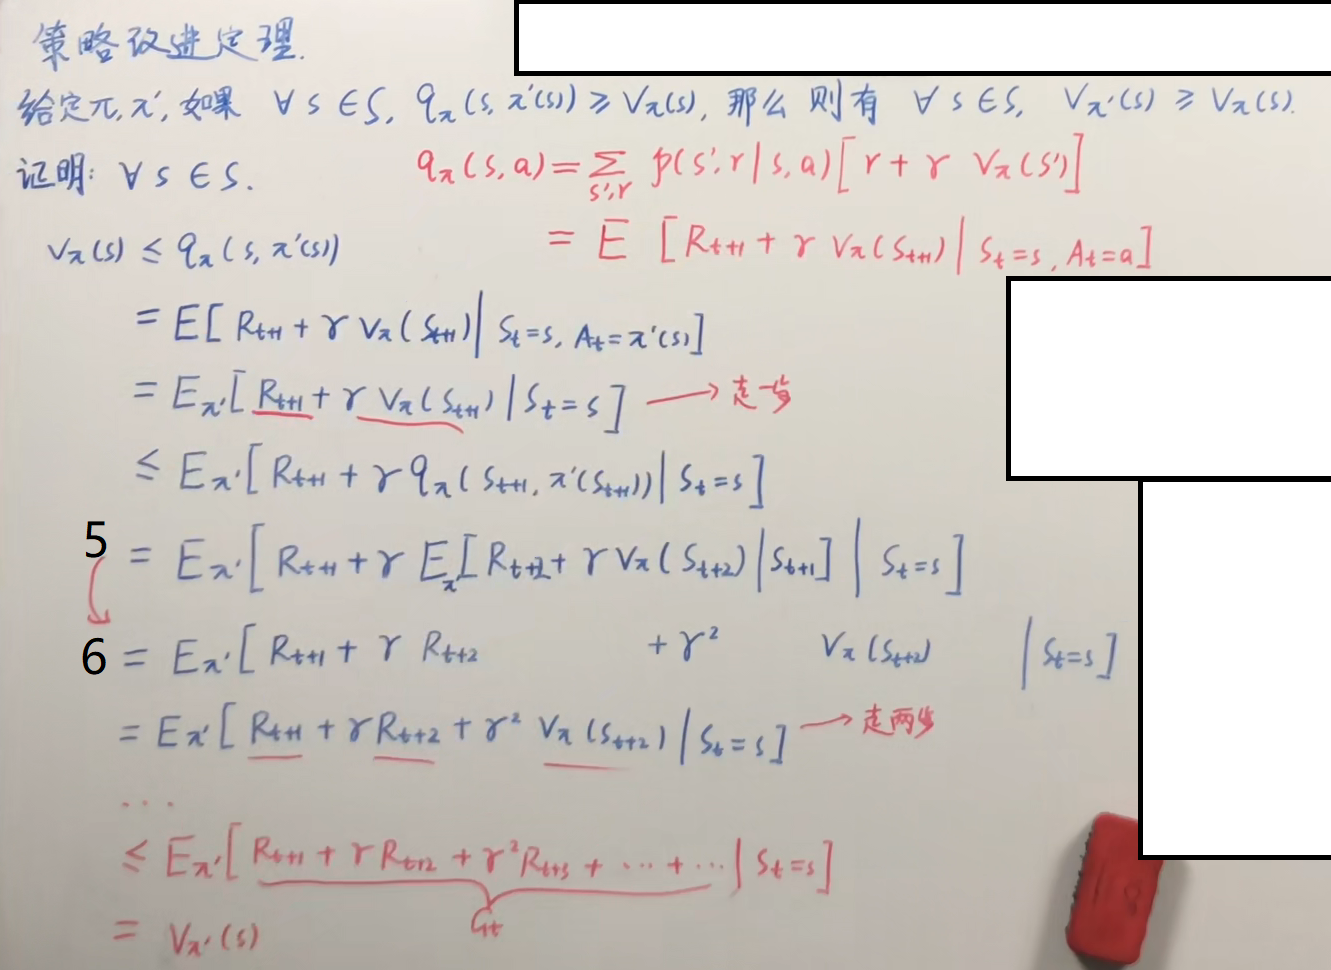 策略改进定理.
给定π,π',如果 ∀ s ∈ S, qπ(s,π'(s)) ≥ Vπ(s), 那么 则有 ∀ s ∈ S, Vπ'(s) ≥ Vπ(s).
证明: ∀ s ∈ S. qπ(s,a) = Σs',r p(s',r|s,a)[r + γ Vπ(s')]
= E [Rt+1 + γ Vπ(St+1) | St=s, At=a]
Vπ(s) ≤ qπ(s,π'(s))
= E[Rt+1 + γ Vπ(St+1) | St=s, At=π'(s)]
= Eπ'[Rt+1 + γ Vπ(St+1) | St=s] → 走一步
≤ Eπ'[Rt+1 + γ qπ(St+1, π'(St+1)) | St=s]
5 = Eπ'[Rt+1 + γ Eπ'[Rt+2 + γ Vπ(St+2) | St+1] | St=s]
6 = Eπ'[Rt+1 + γ Rt+2 + γ² Vπ(St+2) | St=s]
= Eπ'[Rt+1 + γ Rt+2 + γ² Vπ(St+2) | St=s] → 走两步
...
≤ Eπ'[Rt+1 + γ Rt+2 + γ² Rt+3 + ... + ... | St=s]
Gt
= Vπ'(s)